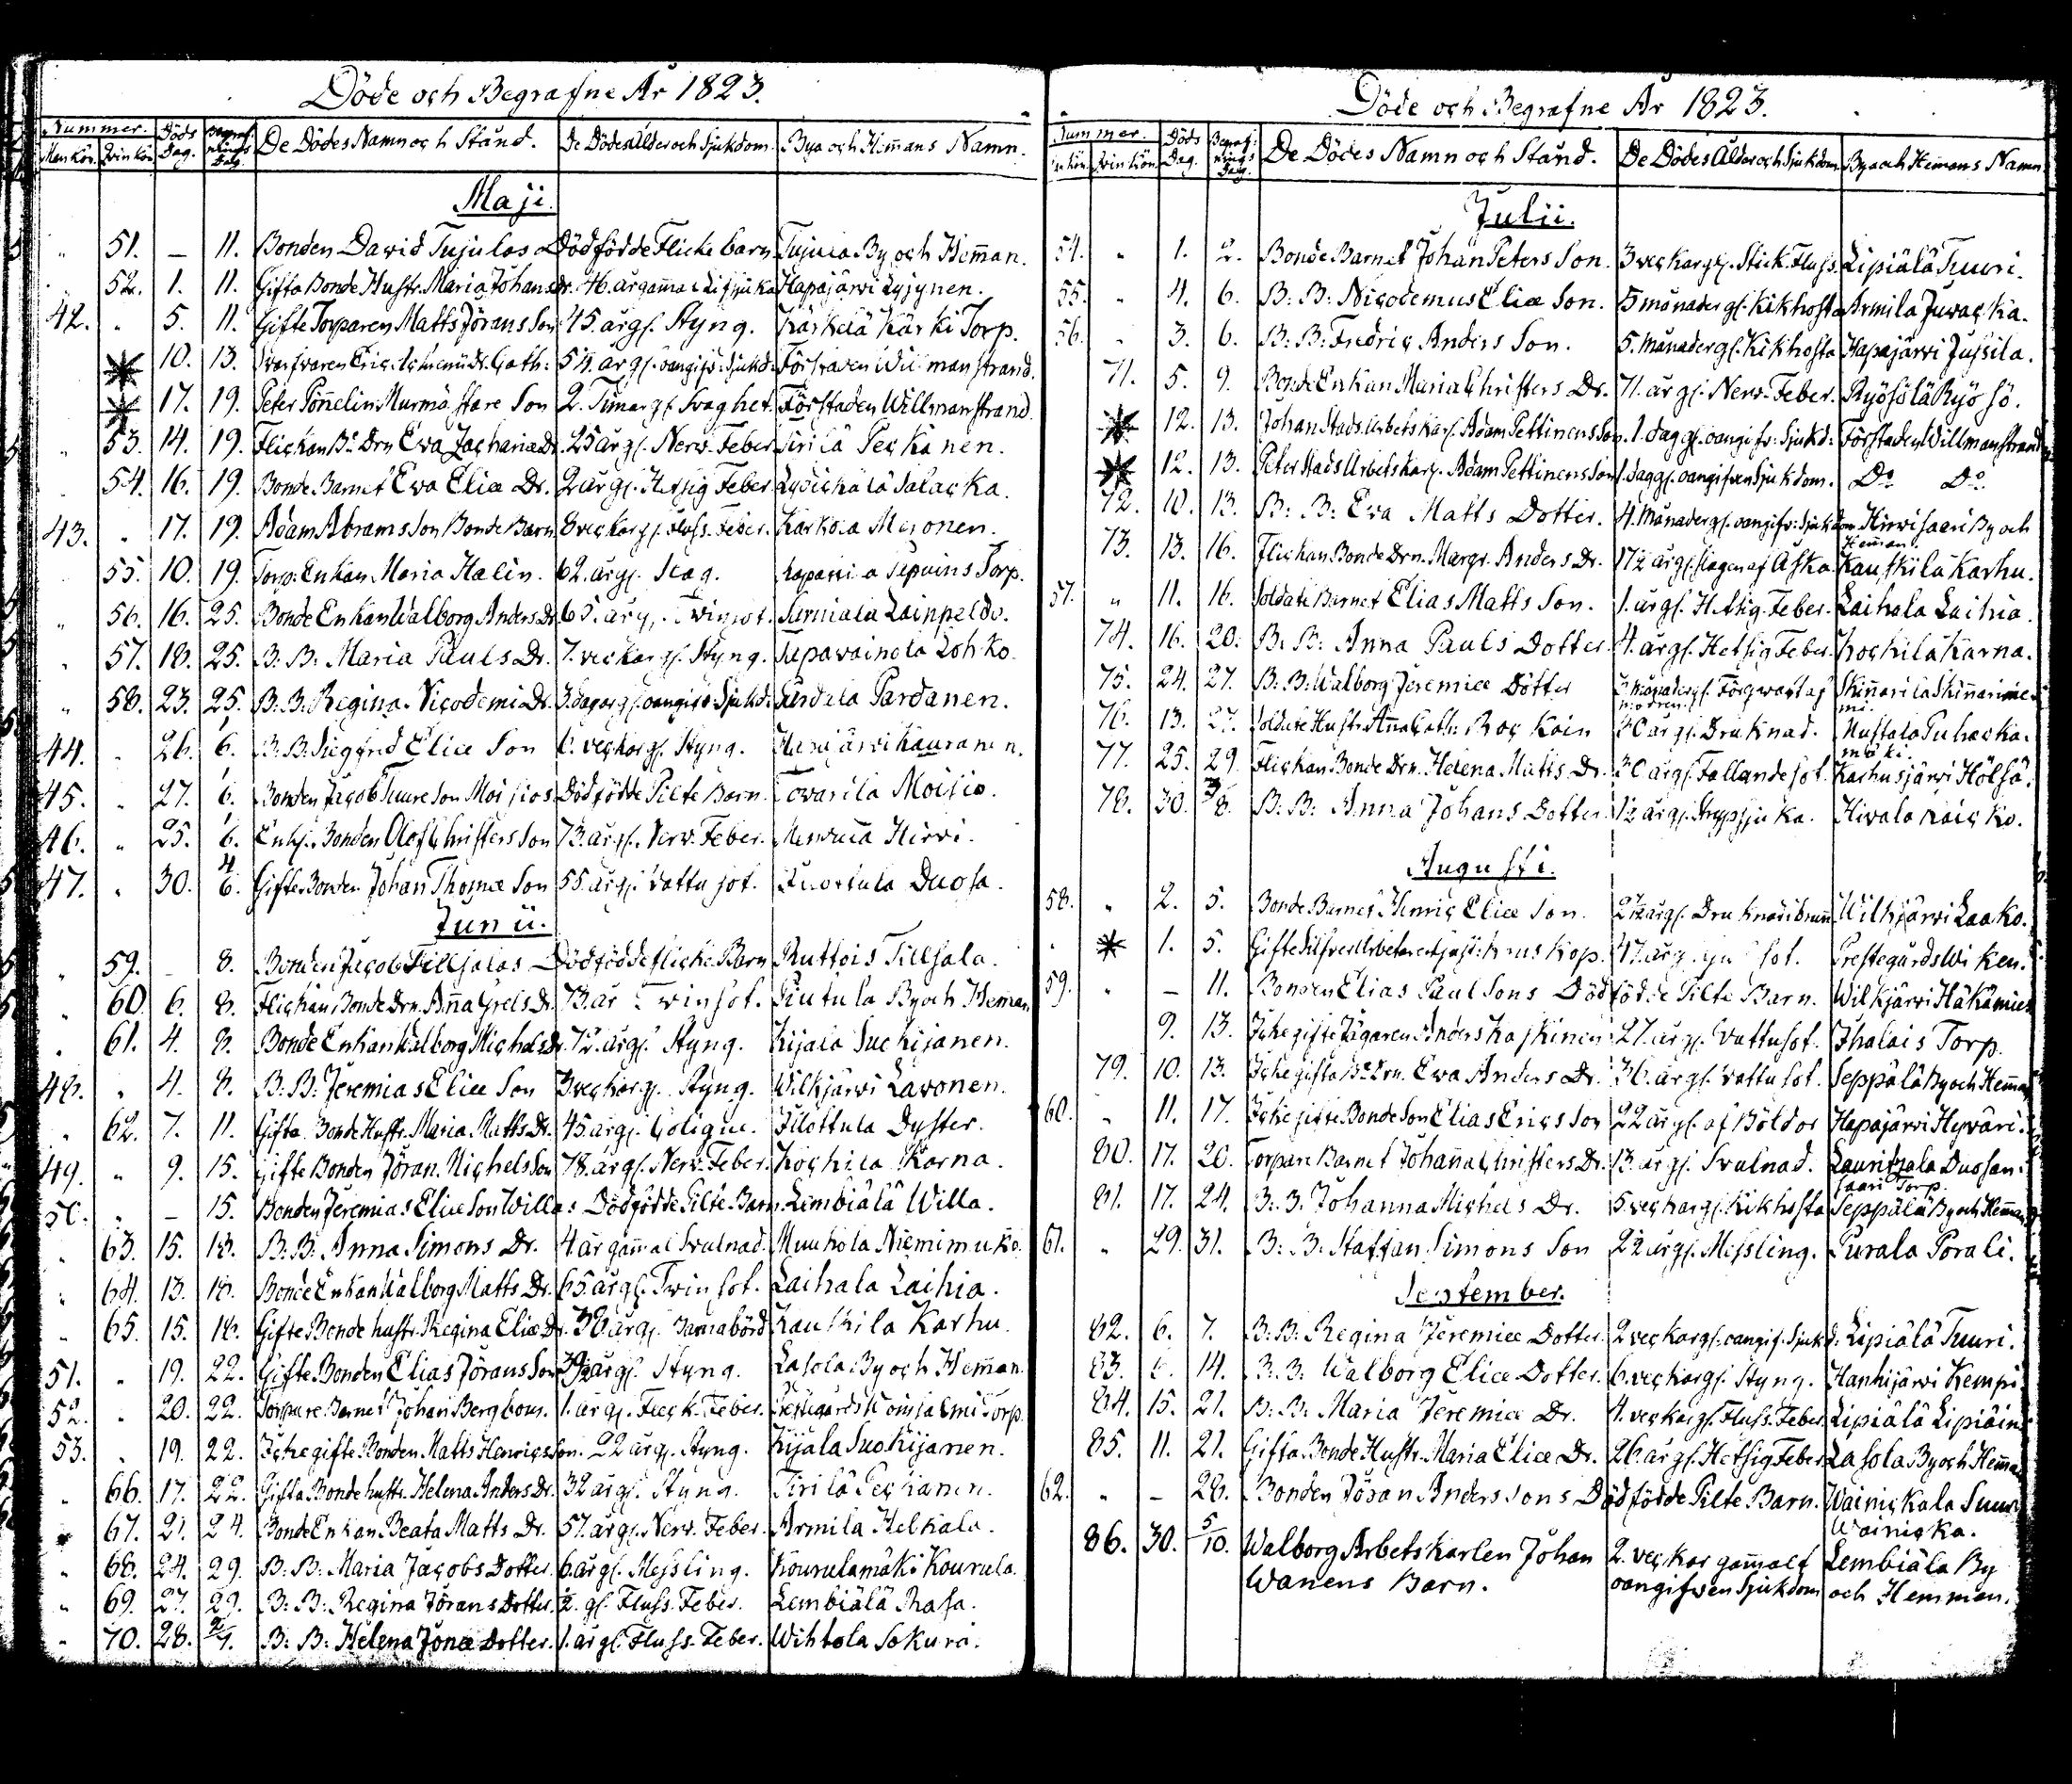 Döde och Begrafne År 1823.
Nummer. Döds Dag. Begraf: nings Dag. De Dödes Namn och Stånd. De Dödes Ålder och Sjukdom. Bya och Hem̄ans Namn.
Man kön. Qvin kön
Maji.
" 51. — 11. Bonden David Tujulas Dödfödde Flicke barn Tujula By och Hem̄an.
" 52. 1. 11. Gifta Bonde Hustr. Maria Johans Dr. 46. år gam̄al Hapajärvi
42. " 5. 11. Gifte Torparen Matts Jörans Son 45. årgl. Styng. Kärkelä Kärki Torp.
10. 13. 54. årgl. oangifv: Sjukd: Förstaden Willmanstrand.
17. 19. Peter Murmästare Son 2. Tim̄ar gl. Svaghet. Förstaden Willmanstrand.
" 53. 14. 19. Flickan Bd. Drn Ewa Zachariæ Dr. 25 årgl. Nerv. Feber Tirilä Peckanen.
54. 16. 19. Bonde Barnet Ewa Eliæ Dr. 2 årgl. Hetsig Feber. Salacka.
43. " 17. 19. Adam Abrams Son Bonde Barn 8 veckor gl. Fluss. Feber. Karkola
55. 10. 19. Torp: Enkan Maria Halin. 62. årgl. Slag. Torp.
" 56. 16. 25. Bonde Enkan Walborg Anders Dr. 65. årgl. Twinsot.
" 57. 18. 25. B. B. Maria Pauls Dr. 7. veckor gl. Styng. Lohko.
" 58. 23. 25. B. B. Regina Nicodemi Dr. 3. dagar gl. oangifv: Sjukd: Pardanen.
44. " 26. 6. B. B. Sigfrid Eliæ Son 6. veckor gl. Styng. Hapajärvi Kauranen.
45. " 27. 6. Bonden Jacob Tuure Son Moisios Dödfödde Pilte Barn. Moisio.
46. " 25. 6. Enkl. Bonden Olof Christers Son 73. årgl. Nerv. Feber. Hirvi.
47. " 30. 4/6. Gifte Bonden Johan Thomæ Son 55. årgl. Vattusot. Duosa.
Junii.
" 59. – 8. Bonden Jacob Tillsalas Dödfödde Flicke Barn Ruttois Tillsala.
" 60. 6. 8. Flickan Bonde Drn. Anna Grels Dr. 73. år Twinsot. By och Heman.
" 61. 4. 8. Bonde Enkan Walborg Michels Dr. 72. årgl. Styng. Kijala Suckijanen.
48. " 4. 8. B. B. Jeremias Eliæ Son 3 veckor gl. Styng. Wilkjärvi Lavonen.
" 62. 7. 11. Gifta Bonde Hustr. Maria Matts Dr. 45. årgl. Colique. Dyster.
49. " 9. 15. Gifte Bonden Jöran Michels Son 78. årgl. Nerv. Feber. Kockila Karna.
50. " – 15. Bonden Jeremias Eliæ Son Willas Dödfödde Pilte-Barn Lembiälä Willa.
" 63. 15. 18. B. B. Anna Simons Dr. 4 år gam̄al Svulnad. Muukola Niemimuko.
" 64. 13. 18. Bonde Enkan Walborg Matts Dr. 65. årgl. Twinsot. Laihala Laihia.
" 65. 15. 18. Gifte Bonde hustr. Regina Eliæ Dr. 38. årgl. Barnabörd Kauskila Karhu.
51. " 19. 22. Gifte Bonden Elias Jörans Son 39 årgl. Styng. Lasola By och Hem̄an.
52. " 20. 22. Torpare Barnet Johan Bergbom. 1. årgl. Fleck. Feber. Torp.
53. " 19. 22. Icke gifte Bonden Matts Henrics Son. 22 årgl. Styng. Kijala Suckijanen.
" 66. 17. 22. Gifta Bonde hustr. Helena Anders Dr. 32 årgl. Styng. Tirilä Peckanen.
67. 21. 24. Bonde Enkan Beata Matts Dr. 57. årgl. Nerv. Feber. Armila Helkala.
" 68. 24. 29. B. B. Maria Jacobs Dotter. 6. årgl. Messling. Kourulamäki Kourula.
" 69. 27. 29. B. B. Regina Jörans Dotter. ½. gl. Fluss. Feber. Lembiälä Rasa.
" 70. 28. 2/7. B: B: Helena Jonæ Dotter. 1. årgl. Fluss. Feber. Wihtola Sokura.
Döde och Begrafne År 1823.
Nummer. Döds Dag. Begraf: nings Dag. De Dödes Namn och Stånd. De Dödes Ålder och Sjukdom By och Hemans Namn.
Qvin kön
Julii.
54. " 1. 2. Bonde Barnet Johan Peters Son. 3 veckor gl. Stick. Fluss. Lipiälä Tuuri.
55. " 4. 6. B: B: Nicodemus Eliæ Son. 5 månader gl. Kikhosta Armila Juvacka.
56. " 3. 6. B: B: Fredric Anders Son. 5. Månader gl. Kikhosta Hapajärvi Jussila.
71. 5. 9. Bonde Enkan Maria Christers Dr. 71. årgl. Nerv-Feber. Ryösölä Ryösö.
12. 13. Johan Stads Arbets karl. Adam Pettinens Son. 1. dag gl. oangifv: Sjukd: Förstaden Willmanstrand
12. 13. Peter Stads Arbets karl. Adam Pettinens Son 1. dag gl. oangifven Sjukdom. Do Do
72. 10. 13. B: B: Ewa Matts Dotter. 4. Månader gl. oangifv: Sjukdom Hirvisaari By och
Hem̄an.
73. 13. 16. Flickan Bonde Drn. Margr. Anders Dr. 17½ årgl. slagen af Åska Kauskila Karhu.
57. " 11. 16. Soldate Barnet Elias Matts Son. 1. årgl. Hetsig. Feber. Laihala Laihia.
74. 16. 20. B. B: Anna Pauls Dotter. 4. årgl. Hetsig Feber. Kockila Karna.
75. 24. 27. B: B: Walborg Jeremiæ Dotter 3 Månader gl. Förqvafd af
modren.
76. 13. 27. Soldate Hustr. Anna Cath: 30 årgl. Druknad. Mustola Puhacka
mäki.
77. 25. 29. Flickan Bonde Drn. Helena Matts Dr. 30 årgl. Fallandesot. Karhusjärvi Hölsä.
78. 30. 3/8. B: B: Anna Johans Dotter. 1½ årgl. Strypsjuka. Hivala
Augusti.
58. " 2. 5. Bonde Barnet Henric Eliæ Son. 2½ årgl. Druknad i brunn Wilkjärvi Laako.
1. 5. Gifte Silfver Arbetaren 47. årgl. sot. PrestegårdsWiken.
59. " – 11. Bonden Elias Paul Sons Dödfödde Pilte Barn. Wilkjärvi Häkämies
9. 13. Icke gifte Jägaren Anders Kaskinen 27. årgl. Vattusot. Ihalais Torp.
79. 10. 13. Icke gifta Bd. Drn. Ewa Anders Dr. 36. årgl. Vattusot. Seppälä By och Hem̄an
60. " 11. 17. Icke gifte Bonde Son Elias Erics Son 22 årgl. af Böldor Hapajärvi Hyväri.
80. 17. 20. Torpare Barnet Johanna Christers Dr. 13. årgl. Svulnad. Lauritzala Duosan:
saari Torp.
81. 17. 24. B. B. Johanna Michels Dr. 5. veckor gl. Kikhosta Seppälä By och Hem̄an
61. " 29. 31. B: B. Staffan Simons Son 2½ årgl. Missling. Purala Porali.
September.
82. 6. 7. B: B: Regina Jeremiæ Dotter. 2 veckor gl. oangif. Sjukd: Lipiälä Tuuri.
83. 14. B: B: Walborg Eliæ Dotter. 6. veckor gl. Styng. Hanhijärvi Kempi
84. 15. 21. B: B: Maria Jeremiæ Dr. 4. veckor gl. Fluss. Feber Lipiälä Lipiäin
85. 11. 21. Gifta Bonde Hustr. Maria Eliæ Dr. 26. årgl. Hetsig Feber Lasola By och Hem̄an
62. " – 28. Bonden Jöran Anders sons Dödfödde Pilte Barn. Wainickala Suur
Wainicka.
86. 30. 5/10. Walborg Arbetskarlen Johan 2. veckor gam̄alt Lembiälä By
Wanens Barn. oangifven Sjukdom och Hemman.